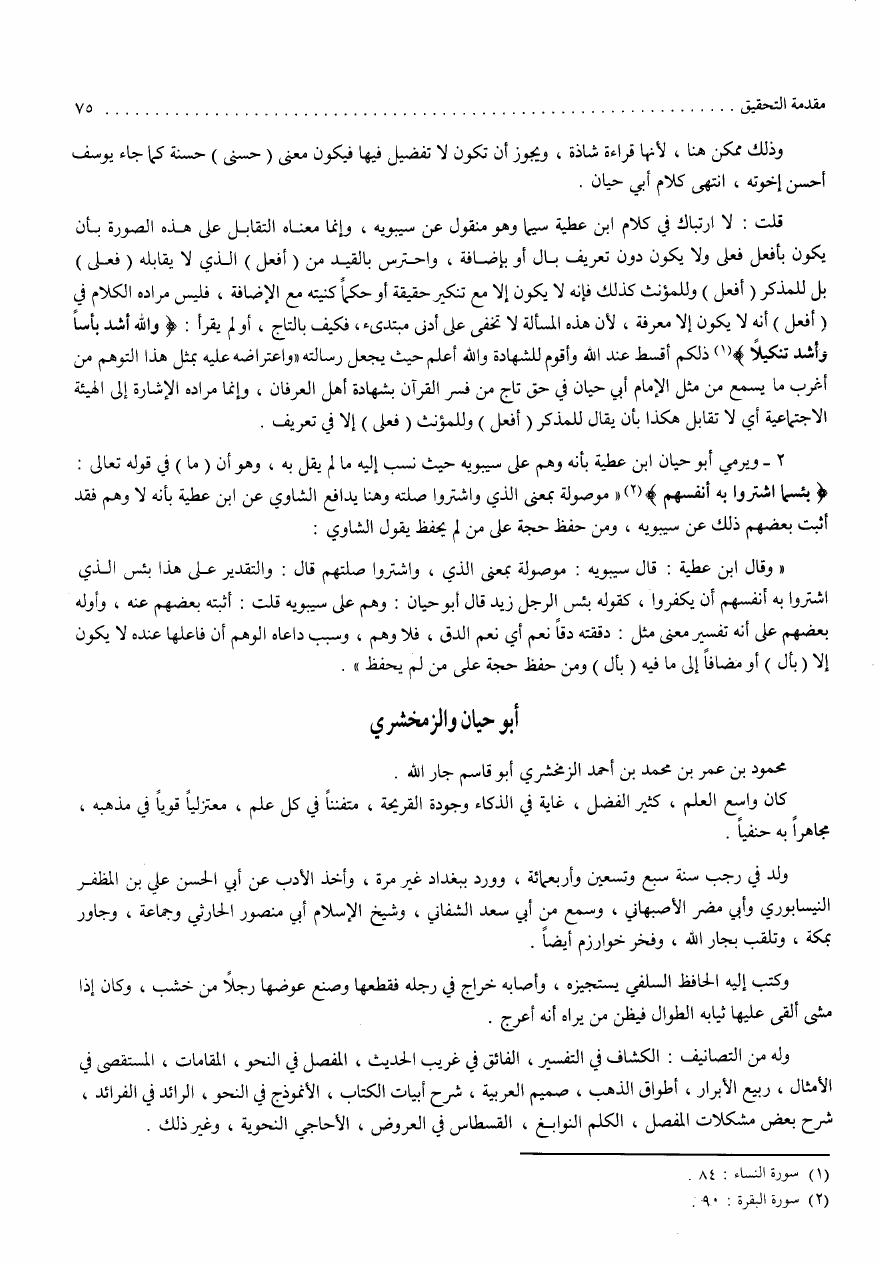 مقدمة التحقيق ................................................................ ٧٥
وذلك ممكن هنا ، لأنها قراءة شاذة ، ويجوز أن تكون لا تفضيل فيها فيكون معنى ( حسنى ) حسنة كما جاء يوسف
أحسن إخوته ، انتهى كلام أبي حيان .
قلت : لا ارتباك في كلام ابن عطية سيما وهو منقول عن سيبويه ، وإنما معناه التقابل على هذه الصورة بأن
يكون بأفعل فعلى ولا يكون دون تعريف بال أو بإضافة ، واحترس بالقيد من ( أفعل ) الذي لا يقابله ( فعلى )
بل للمذكر ( أفعل ) وللمؤنث كذلك فإنه لا يكون إلا مع تنكير حقيقة أو حكماً كنيته مع الإضافة ، فليس مراده الكلام في
( أفعل ) أنه لا يكون إلا معرفة ، لأن هذه المسألة لا تخفى على أدنى مبتدىء ، فكيف بالتاج ، أو لم يقرأ : ﴿ والله أشد بأساً
وأشد تنكيلاً ﴾(١) ذلكم أقسط عند الله وأقوم للشهادة والله أعلم حيث يجعل رسالته «واعتراضه عليه بمثل هذا التوهم من
أغرب ما يسمع من مثل الإمام أبي حيان في حق تاج من فسر القرآن بشهادة أهل العرفان ، وإنما مراده الإشارة إلى الهيئة
الاجتماعية أي لا تقابل هكذا بأن يقال للمذكر ( أفعل ) وللمؤنث ( فعلى ) إلا في تعريف .
٢ - ويرمي أبو حيان ابن عطية بأنه وهم على سيبويه حيث نسب إليه ما لم يقل به ، وهو أن ( ما ) في قوله تعالى :
﴿ بئسما اشتروا به أنفسهم ﴾(٢) « موصولة بمعنى الذي واشتروا صلته وهنا يدافع الشاوي عن ابن عطية بأنه لا وهم فقد
أثبت بعضهم ذلك عن سيبويه ، ومن حفظ حجة على من لم يحفظ يقول الشاوي :
« وقال ابن عطية : قال سيبويه : موصولة بمعنى الذي ، واشتروا صلتهم قال : والتقدير على هذا بئس الذي
اشتروا به أنفسهم أن يكفروا ، كقوله بئس الرجل زيد قال أبو حيان : وهم على سيبويه قلت : أثبته بعضهم عنه ، وأوله
بعضهم على أنه تفسير معنى مثل : دققته دقاً نعم أي نعم الدق ، فلا وهم ، وسبب داعاه الوهم أن فاعلها عنده لا يكون
إلا ( بأل ) أو مضافاً إلى ما فيه ( بأل ) ومن حفظ حجة على من لم يحفظ » .
أبو حيان والزمخشري
محمود بن عمر بن محمد بن أحمد الزمخشري أبو قاسم جار الله .
كان واسع العلم ، كثير الفضل ، غاية في الذكاء وجودة القريحة ، متفنناً في كل علم ، معتزلياً قوياً في مذهبه ،
مجاهراً به حنفياً .
ولد في رجب سنة سبع وتسعين وأربعمائة ، وورد ببغداد غير مرة ، وأخذ الأدب عن أبي الحسن علي بن المظفر
النيسابوري وأبي مضر الأصبهاني ، وسمع من أبي سعد الشفاني ، وشيخ الإسلام أبي منصور الحارثي وجماعة ، وجاور
بمكة ، وتلقب بجار الله ، وفخر خوارزم أيضاً .
وكتب إليه الحافظ السلفي يستجيزه ، وأصابه خراج في رجله فقطعها وصنع عوضها رجلاً من خشب ، وكان إذا
مشى ألقى عليها ثيابه الطوال فيظن من يراه أنه أعرج .
وله من التصانيف : الكشاف في التفسير ، الفائق في غريب الحديث ، المفصل في النحو ، المقامات ، المستقصى في
الأمثال ، ربيع الأبرار ، أطواق الذهب ، صميم العربية ، شرح أبيات الكتاب ، الأنموذج في النحو ، الرائد في الفرائد ،
شرح بعض مشكلات المفصل ، الكلم النوابغ ، القسطاس في العروض ، الأحاجي النحوية ، وغير ذلك .
(١) سورة النساء : ٨٤ .
(٢) سورة البقرة : ٩٠ .